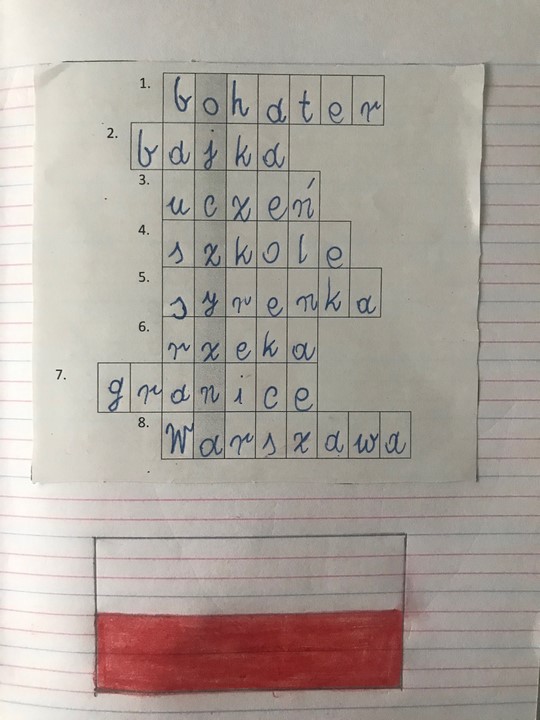 1. bohater
2. bajka
3. uczeń
4. szkole
5. syrenka
6. rzeka
7. granice
8. Warszawa